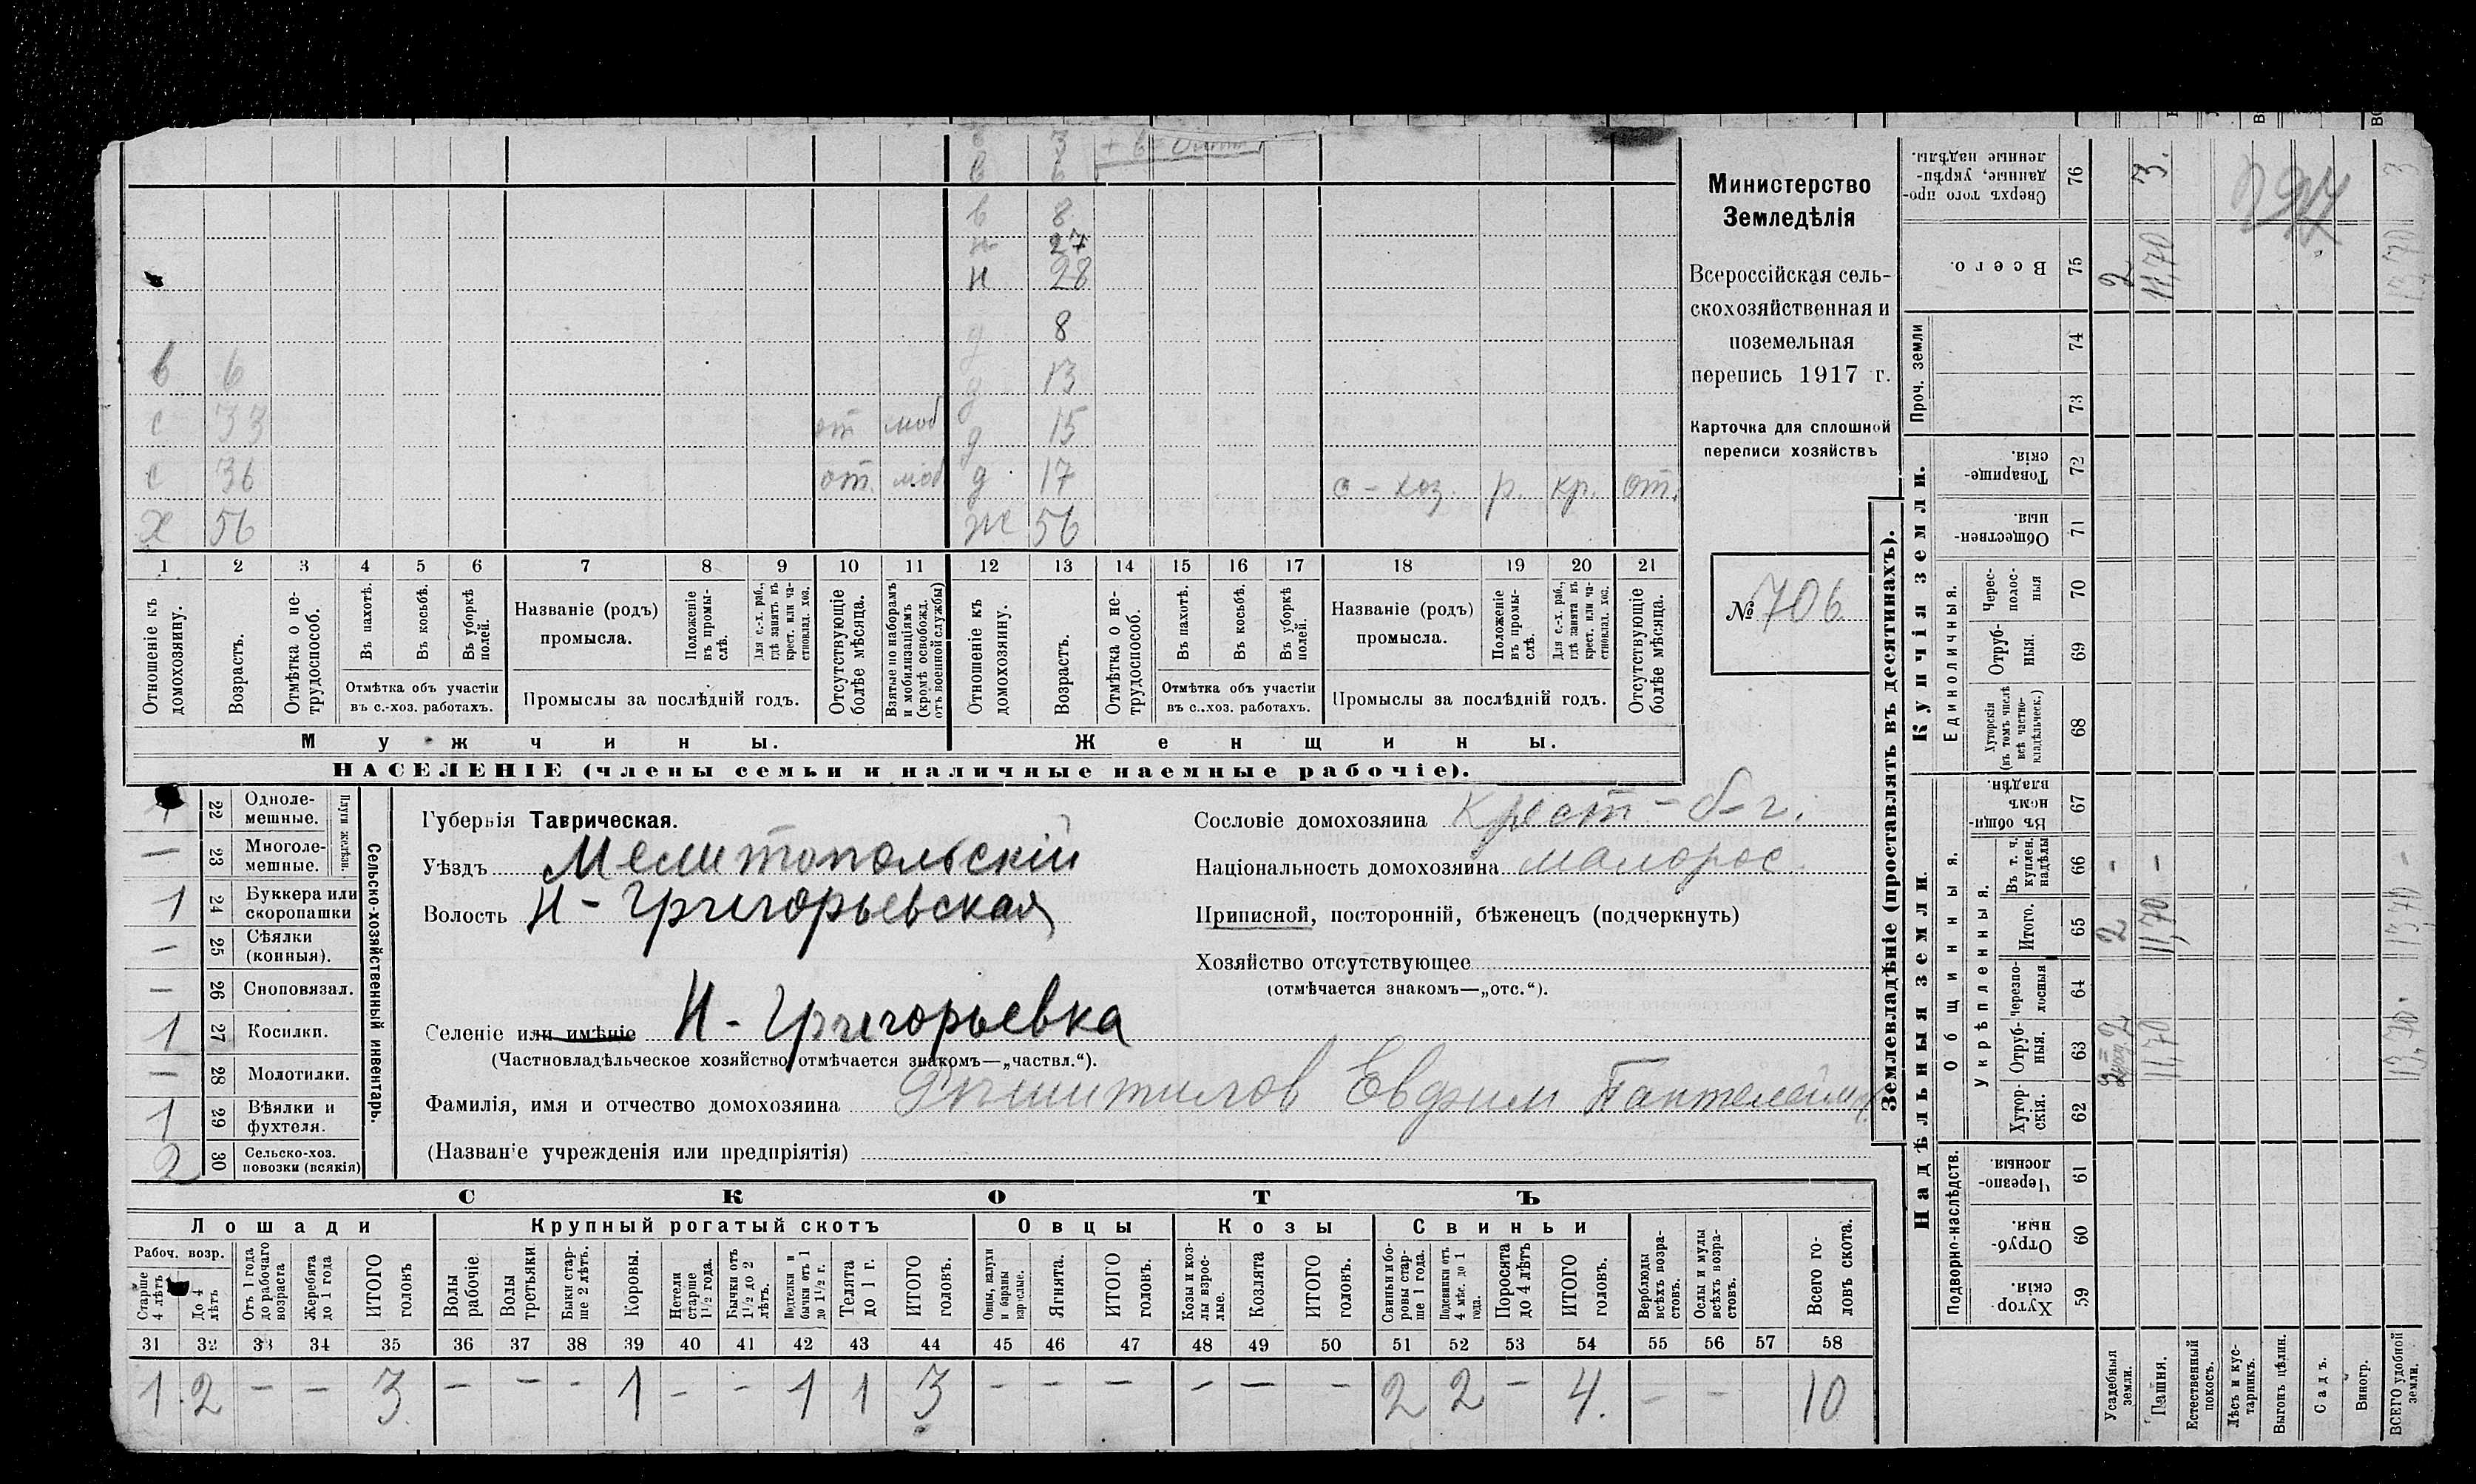 в 3
в 6
в 8
н 27
н 28
д 8
в 6 д 13
с 33 от моб д 15
с 36 от. моб д 17 с-хоз. р. кр. от.
х 56 ж 56
1 2 3 4 5 6 7 8 9 10 11 12 13 14 15 16 17 18 19 20 21
Отношеніе къ домохозяину.
Возрастъ.
Отмѣтка о не-
трудоспособ.
Въ пахотѣ.
Въ косьбѣ.
Въ уборкѣ
полей.
Отмѣтка объ участіи
въ с.-хоз. работахъ.
Названіе (родъ)
промысла.
Положеніе
въ промы-
слѣ.
Для с.-х. раб.,
гдѣ занятъ въ
крест. или ча-
стновлад. хоз.
Промыслы за послѣдній годъ.
Отсутствующіе
болѣе мѣсяца.
Взятые по наборамъ
и мобилизаціямъ
(кромѣ освобожд.
отъ военной службы)
Отношеніе къ
домохозяину.
Возрастъ.
Отмѣтка о не-
трудоспособ.
Въ пахотѣ.
Въ косьбѣ.
Въ уборкѣ
полей.
Отмѣтка объ участіи
въ с..хоз. работахъ.
Названіе (родъ)
промысла.
Положеніе
въ промы-
слѣ.
Для с.-х. раб.,
гдѣ занята въ
крест. или ча-
стновлад. хоз.
Промыслы за послѣдній годъ.
Отсутствующіе
болѣе мѣсяца.
Мужчины. Женщины.
НАСЕЛЕНІЕ (члены семьи и наличные наемные рабочіе).
Министерство
Земледѣлія
Всероссійская сель-
скохозяйственная и
поземельная
перепись 1917 г.
Карточка для сплошной
переписи хозяйствъ
№ 706
22 Одноле-
мешные.
Плуги желѣзн.
— 23 Многоле-
мешные.
1 24 Буккера или
скоропашки
— 25 Сѣялки
(конныя).
— 26 Сноповязал.
1 27 Косилки.
— 28 Молотилки.
1 29 Вѣялки и
фухтеля.
2 30 Сельско-хоз.
повозки (всякія)
Сельско-хозяйственный инвентарь.
Губернія Таврическая.
Уѣздъ Мелитопольскій
Волость Н-Григорьевская
Селеніе или имѣніе Н-Григорьевка
(Частновладѣльческое хозяйство отмѣчается знакомъ—„частвл.“).
Фамилія, имя и отчество домохозяина Евфим Пантелейм
(Названіе учрежденія или предпріятія)
Сословіе домохозяина Крест-
Національность домохозяина малорос.
Приписной, посторонній, бѣженецъ (подчеркнуть)
Хозяйство отсутствующее
(отмѣчается знакомъ—„отс.“).
СКОТЪ
Лошади Крупный рогатый скотъ Овцы Козы Свиньи
Рабоч. возр.
Старше
4 лѣтъ
До 4
лѣтъ
Отъ 1 года
до рабочаго
возраста
Жеребята
до 1 года
ИТОГО
головъ
Волы
рабочіе
Волы
третьяки
Быки стар-
ше 2 лѣтъ.
Коровы.
Нетели
старше
1½ года.
Бычки отъ
1½ до 2
лѣтъ.
Подтелки и
бычки отъ 1
до 1½ г.
Телята
до 1 г.
ИТОГО
головъ.
Овцы, валухи
и бараны
взрослые.
Ягнята.
ИТОГО
головъ.
Козы и коз-
лы взрос-
лые.
Козлята
ИТОГО
головъ.
Свиньи и бо-
ровы стар-
ше 1 года.
Подсвинки отъ
4 мѣс. до 1
года.
Поросята
до 4 лѣтъ
ИТОГО
головъ.
Верблюды
всѣхъ возра-
стовъ.
Ослы и мулы
всѣхъ возра-
стовъ.
Всего го-
ловъ скота.
31 32 33 34 35 36 37 38 39 40 41 42 43 44 45 46 47 48 49 50 51 52 53 54 55 56 57 58
1 2 — — 3 — — — 1 — — 1 1 3 — — — — — — 2 2 — 4. — — 10
Землевладѣніе (проставлять въ десятинахъ).
Надѣльныя земли
Купчія земли.
Проч. земли
Подворно-наслѣдств.
Общинныя.
Укрѣпленныя.
Единоличныя.
Сверхъ того про-
данные, укрѣп-
ленные надѣлы.
76 3.
Всего. 75 2 11,70
74
73
Товарище-
скія.
72
Обществен-
ныя.
71
Черес-
полос-
ныя
70
Отруб-
ныя.
69
Хуторскія
(въ томъ числѣ
всѣ частно-
владѣльческ.)
68
Въ общин-
номъ
владѣн.
67
Въ т. ч.
куплен.
надѣлы
66 - -
Итого. 65 2 11,70 13,70
Черезпо-
лосныя
64
Отруб-
ныя.
63 2 11,70 13,70.
Хутор-
скія.
62
Черезпо-
лосныя.
61
Отруб-
ныя.
60
Хутор-
скія.
59
Усадебныя
земли.
Пашня.
Естественный
покосъ.
Лѣсъ и кус-
тарникъ.
Выгонъ цѣлин.
Садъ.
Виногр.
ВСЕГО удобной
земли.